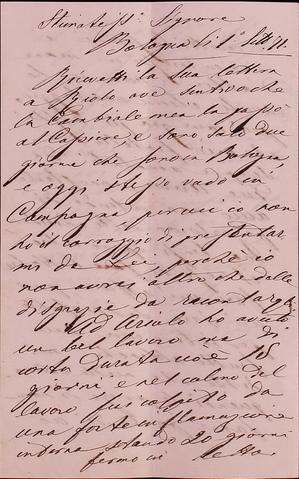 Stimatiss.º Signore
Bologna li 1º Sett 71.
Ricevetti la sua lettera
a Asiolo ove sentivo che
la Cambiale mia la passò
al Cassiere, e sono solo due
giorni che sono in Bologna,
e oggi stesso vado in
Campagna, percui io non
ho il corraggio di presentar
mi da Lei, perchè io
non avrei altro che delle
disgrazie da raccontargli
Ad Asiolo ho avuto
un bel lavoro ma di
corta durata cioè 15
giorni, e nel calmo del
lavoro, fui colpito da
una forte infiamazione
interna stando 20 giorni
fermo in letto.